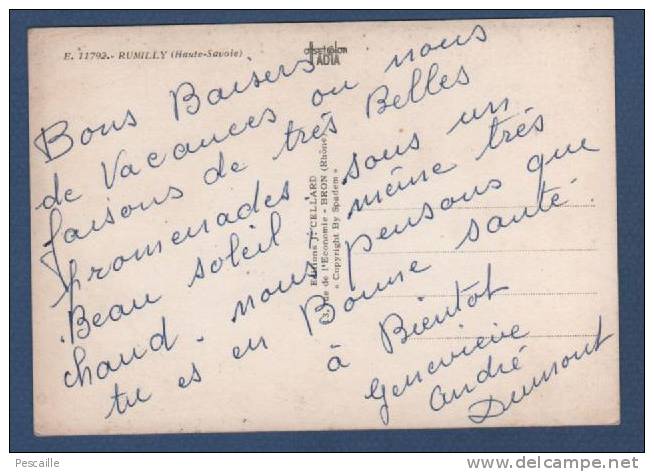 E. 11792. - RUMILLY (Haute-Savoie)
ADIA
Bons Baisers
de Vacances ou nous
faisons de très Belles
promenades sous un
Beau soleil même très
chaud. nous pensons que
tu es en Bonne santé.
à Bientot
Geneviève
André
Dumont
Editions J. CELLARD
de l'Economie - BRON (Rhône)
« Copyright By Spadem »
Pescaille
www.delcampe.net